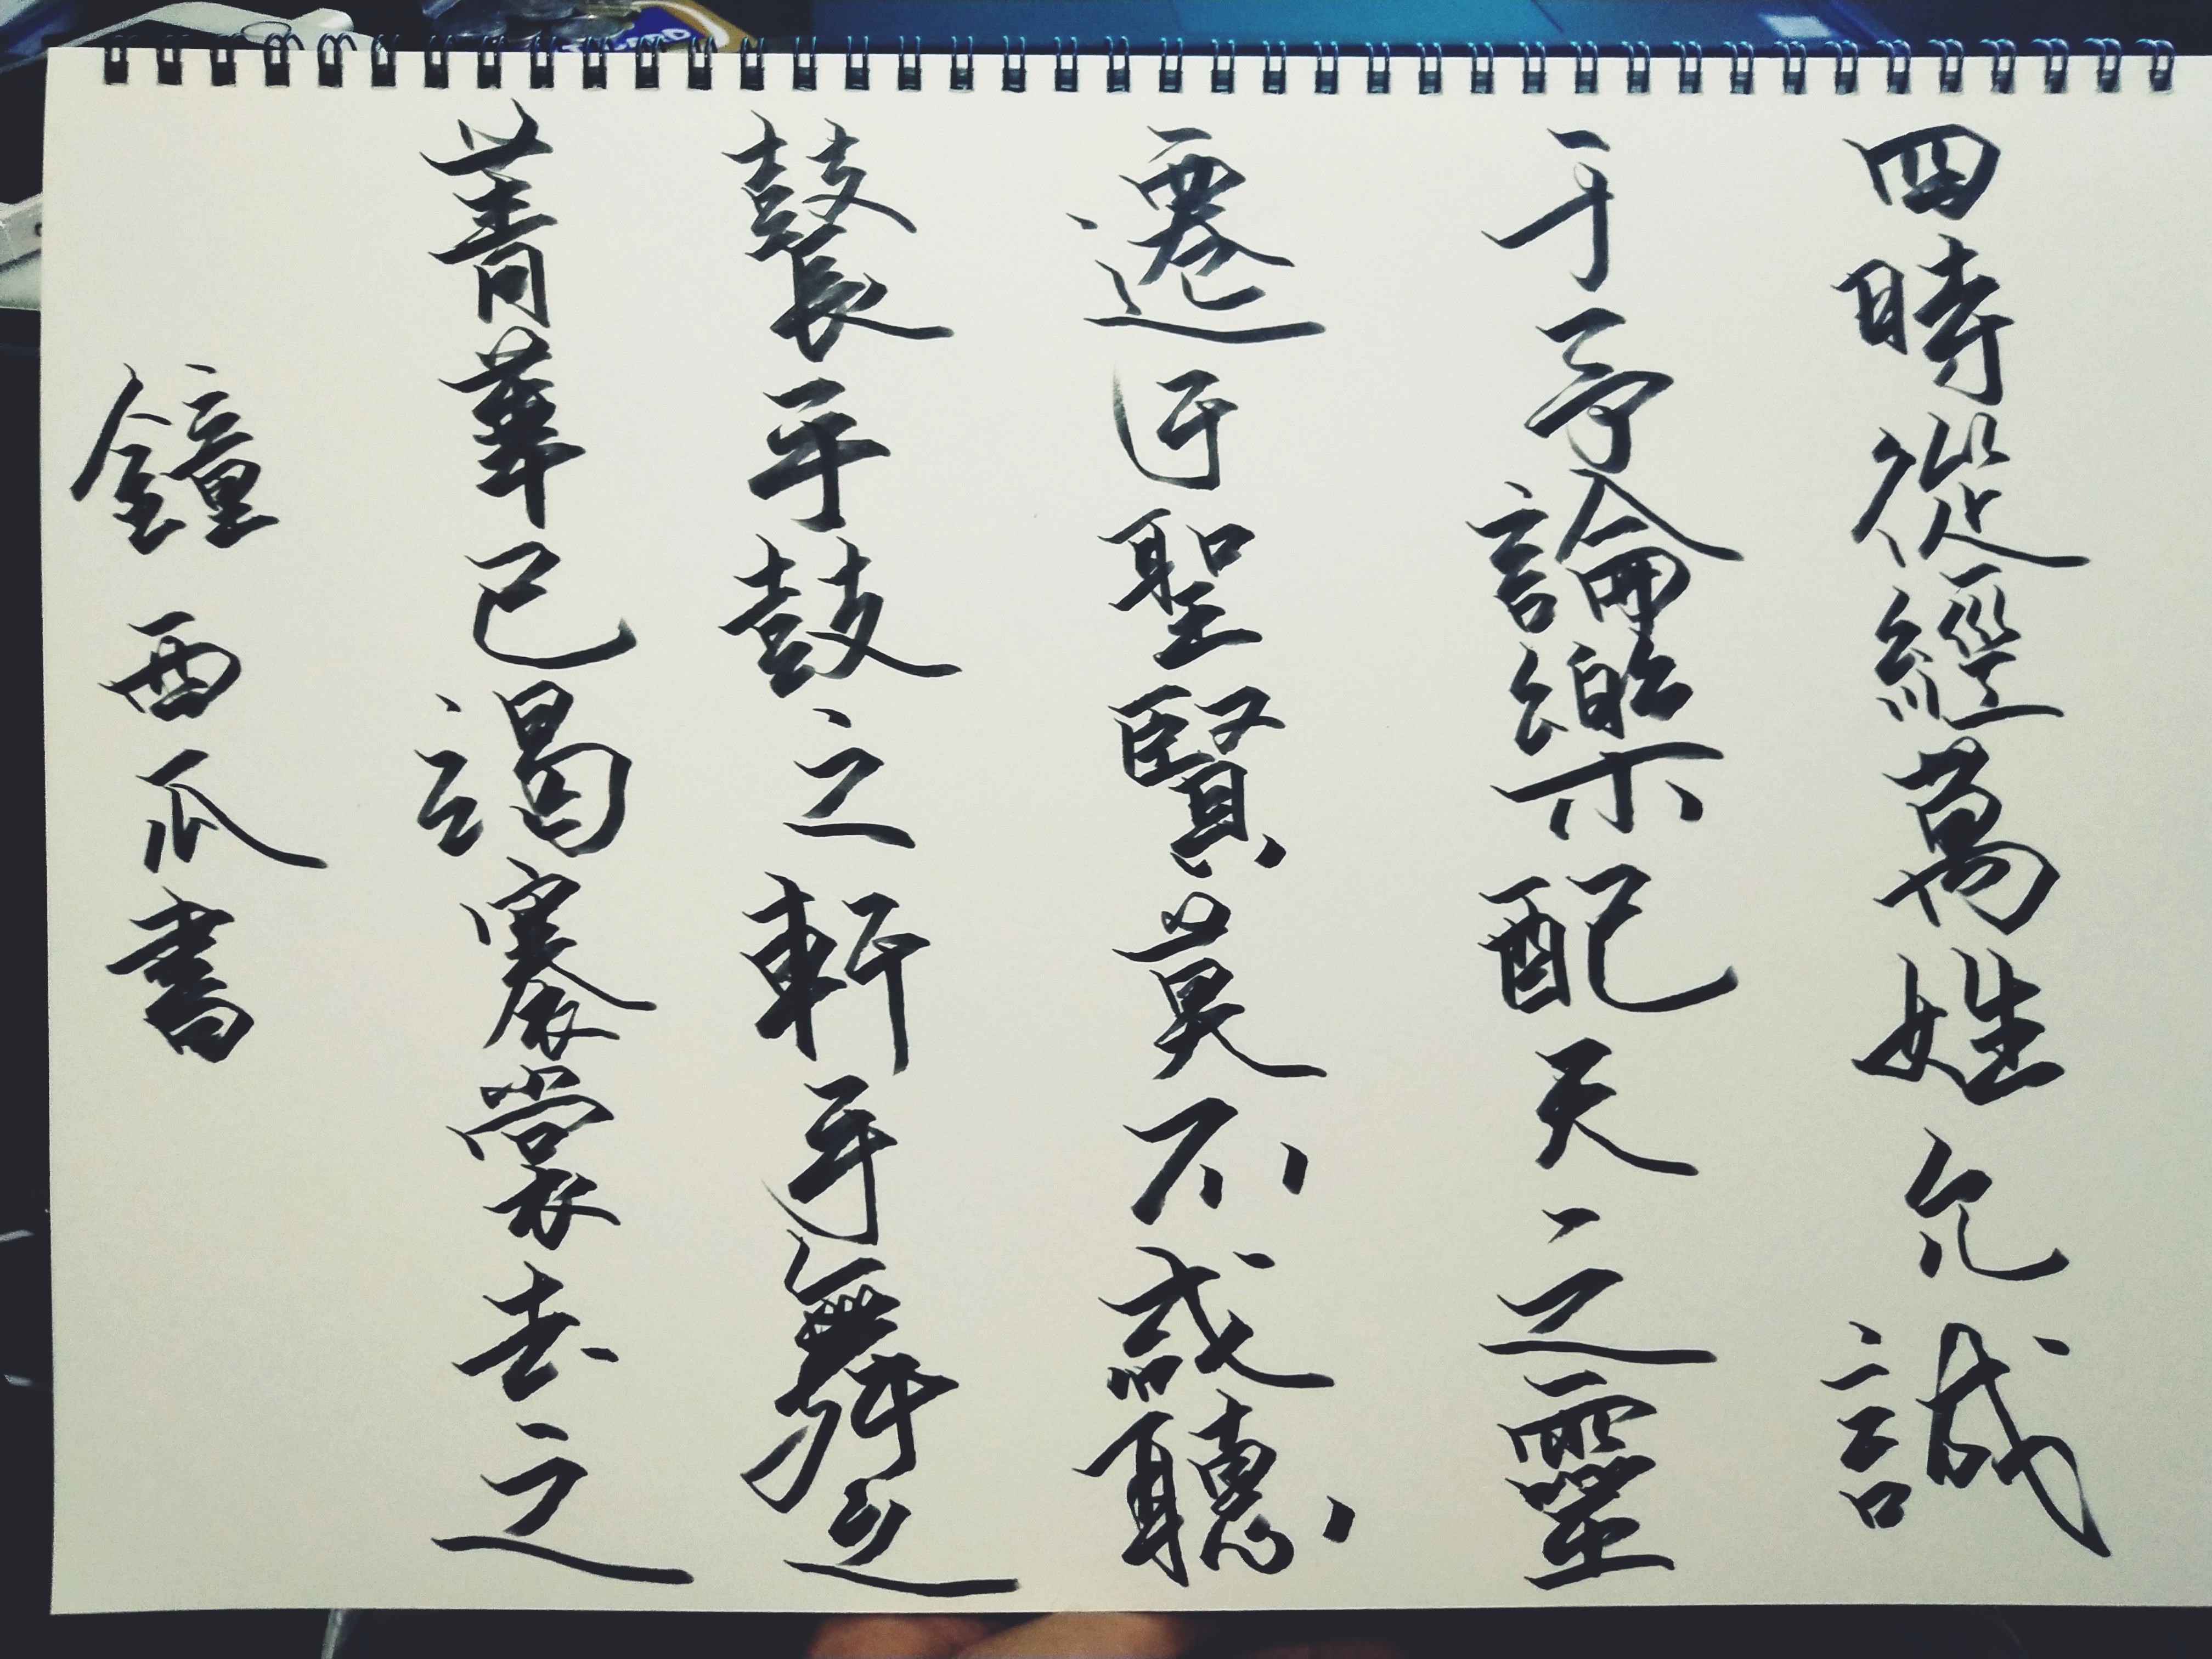 四時從經萬姓允誠
于予論樂配天之靈
遷于聖賢莫不咸聽
鼚乎鼓之軒乎舞之
菁華已竭褰裳去之
鐘西瓜書